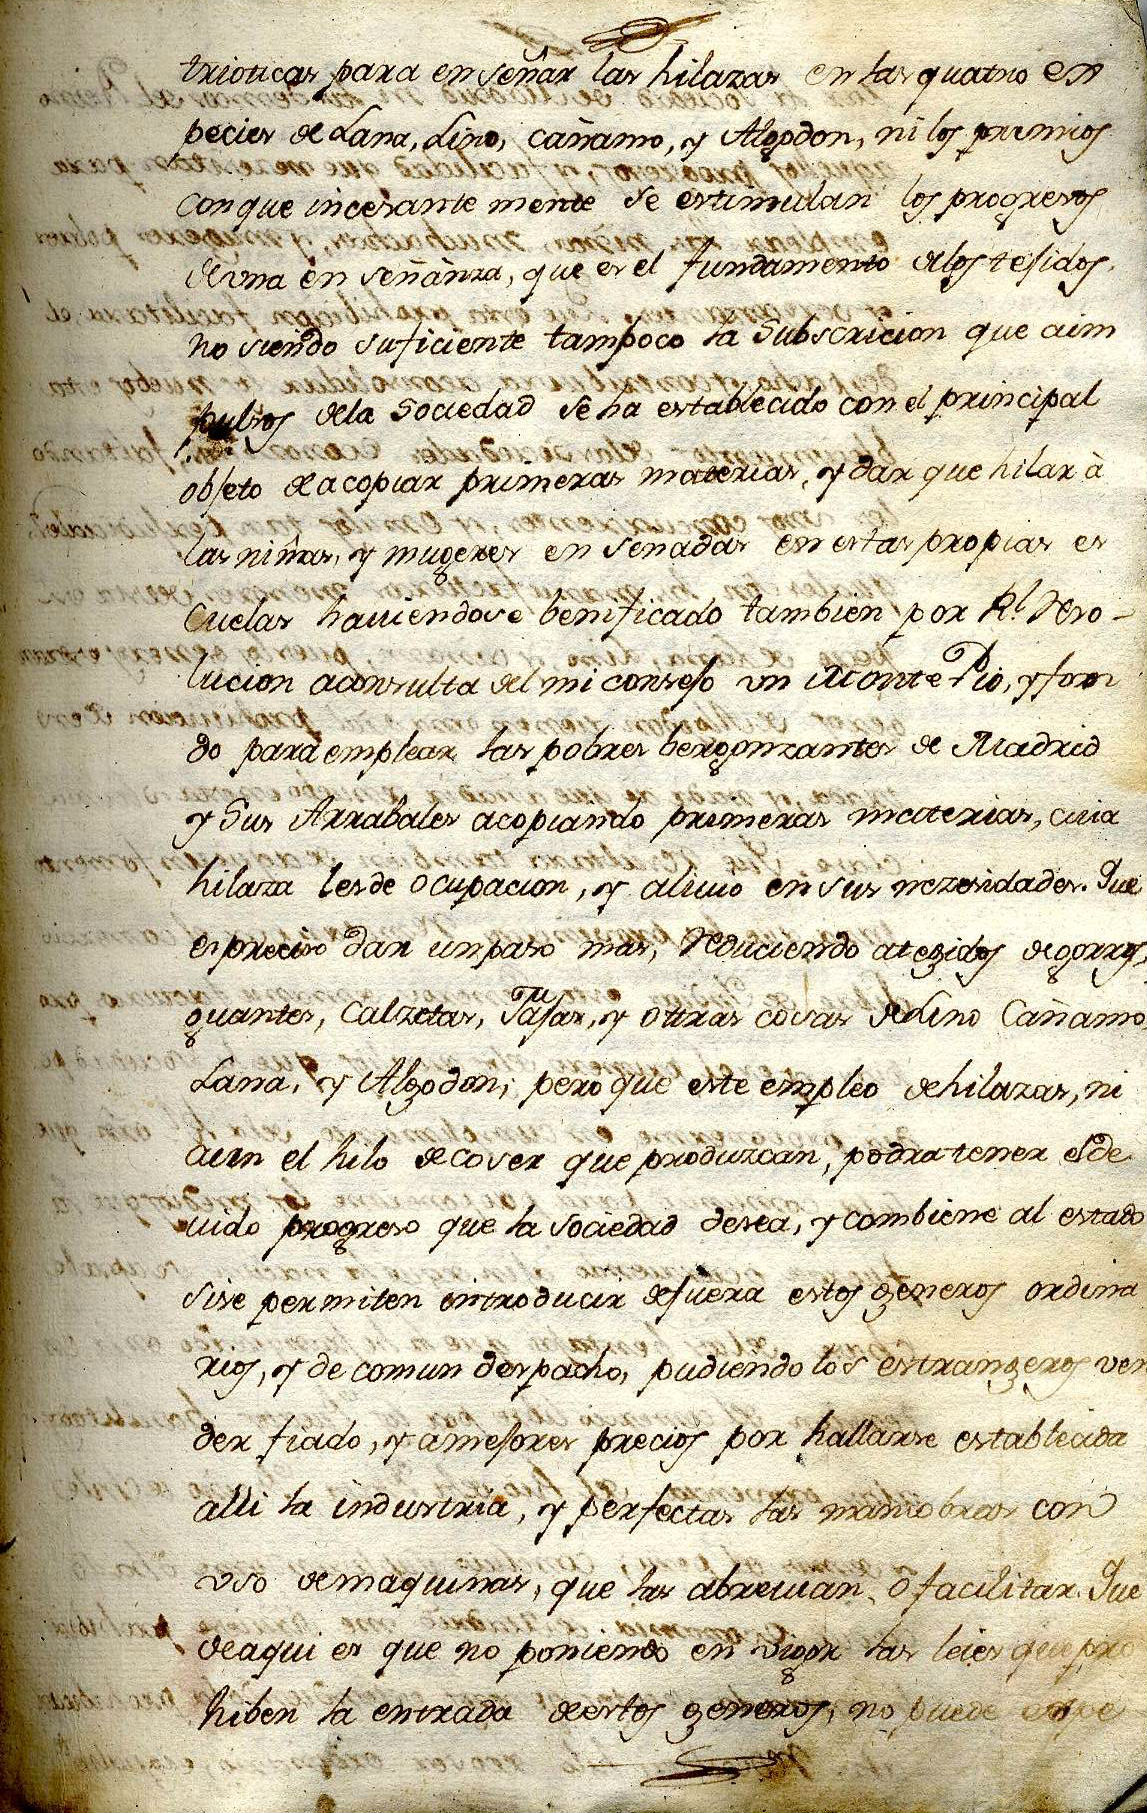 trioticas para enseñar las hilazas en las quatro es
pecies de Lana, Lino, cañamo, y Algodon, ni los premios
con que incesante mente se estimulan los progresos
de vna enseñanza, que es el fundamento de los tefidos,
no siendo suficiente tampoco la Subscricion que aim
pulsos de la Sociedad se ha establecido con el principal
objeto de acopiar primeras materias, y dar que hilar à
las niñas, y mugeres ensenadas en estas propias es
cuelas haviendose benificado tambien por Rl. Reso-
lucion aconsulta del mi consejo un Monte Pio, y fon
do para emplear las pobres bergonzantes de Madrid
y Sus Arrabales acopiando primeras materias, cuia
hilaza les de ocupacion, y alivio en sus nezesidades. Que
es preciso dar un paso mas, reduciendo a tegidos de gorros,
guantes, Calzetas, fajas, y ottras cosas de Lino Cañamo
Lana, y Algodon; pero que este empleo de hilazas, ni
aun el hilo de coser que produzcan, podra tener el de
vido progreso que la Sociedad desea, y combiene al estado
si se permiten introducir de fuera estos generos ordina
rios, y de comun despacho, pudiendo los estrangeros ven
der fiado, y a mejores precios por hallarse establecida
alli la industria, y perfectas las maniobras con
vso de maquinas, que las abrevian, ò facilitan. Que
de aqui es que no poniendo en vigor las leies que pro
hiben la entrada de estos generos, no puede